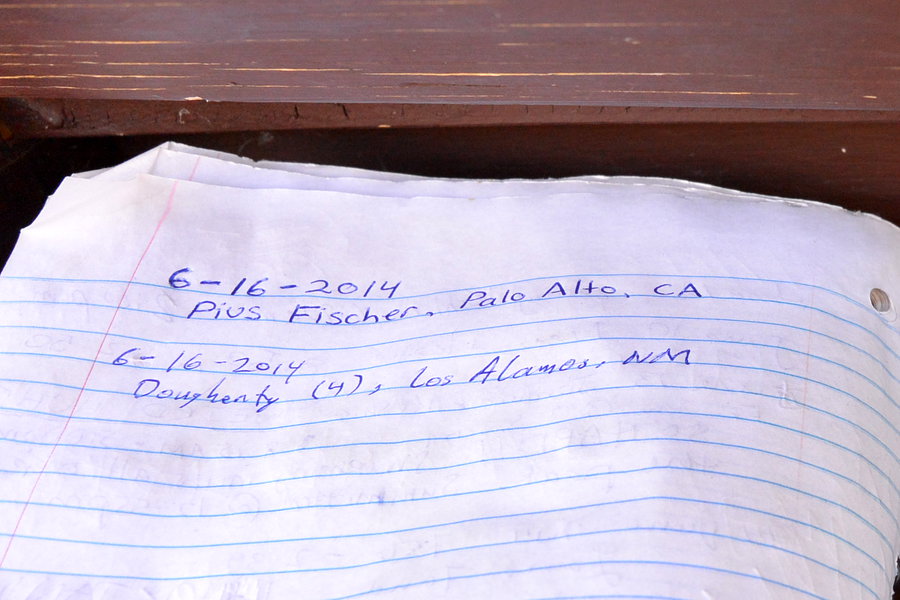 6-16-2014
Pius Fischer, Palo Alto, CA
6-16-2014
Dougherty (4), Los Alamos, NM